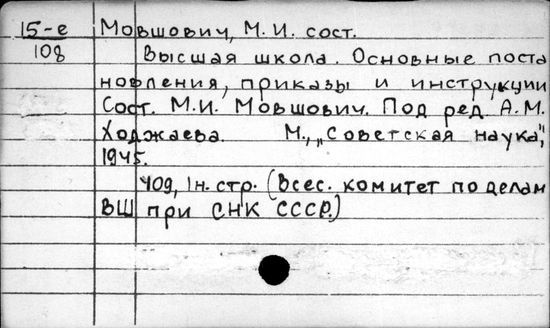 15-е Мовшович, М.И. сост.
108 Высшая школа. Основные поста
новления, приказы и инструкции
Сост. М.И. Мовшович. Под ред. А.М.
Ходжаева. М., „Советская наука",
1945.
409, 1н. стр. (Всес. комитет по делам
ВШ при СНК СССР.)